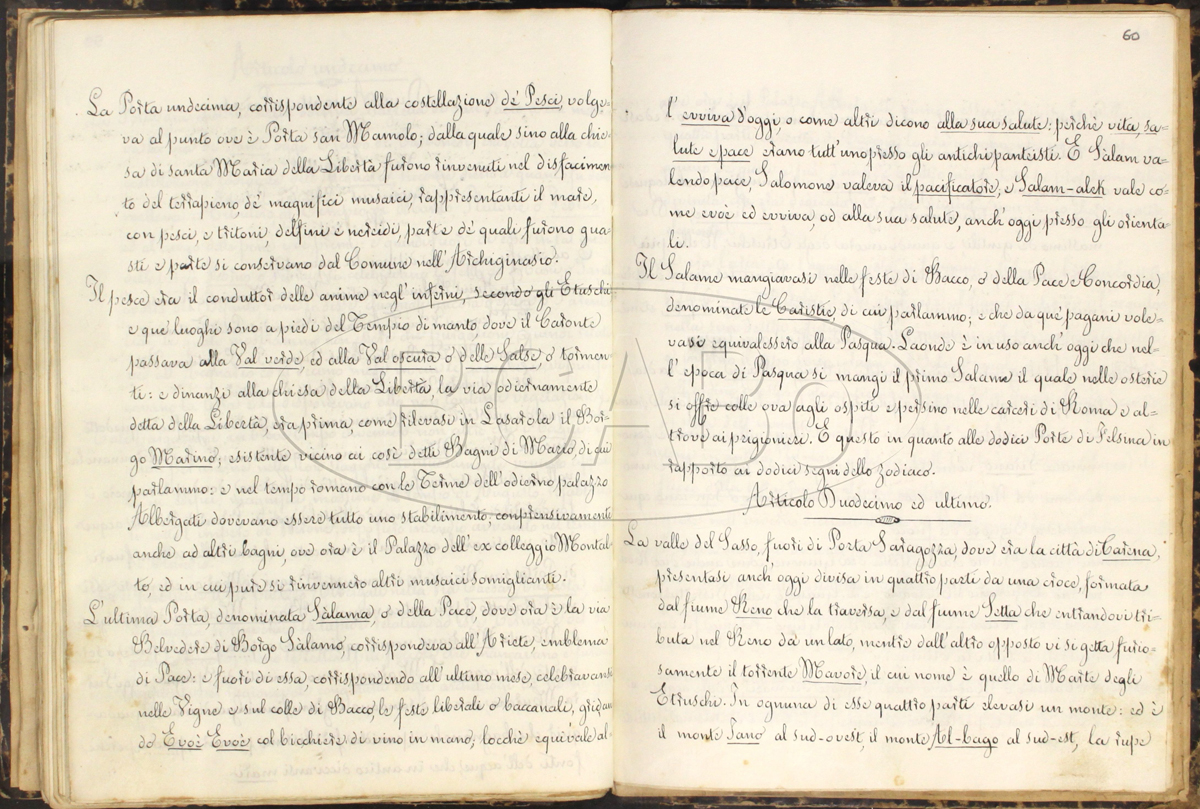 La Porta undecima, corrispondente alla costellazione de' Pesci, volge-
va al punto ove è Porta san Mamolo; dalla quale sino alla chie-
sa di santa Maria della Libertà furono rinvenuti nel disfacimen-
to del terrapieno, de' magnifici musaici, rappresentanti il mare,
con pesci, e tritoni, delfini e nereidi, parte de' quali furono gua-
sti e parte si conservano dal Comune nell'Archiginasio.
Il pesce era il conduttor delle anime negl'inferni, secondo gli Etruschi
e que' luoghi sono a piedi del Tempio di manto, dove il Caronte
passava alla Val verde, ed alla Val oscura o delle Salse, o tormen-
ti: e dinanzi alla chiesa della Libertà, la via odiernamente
detta della Libertà, era prima, come rilevasi in Lasarola il Bor-
go Marino; esistente vicino ai così detti Bagni di Mario, di cui
parlammo: e nel tempo romano con le Terme dell'odierno palazzo
Albergati dovevano essere tutto uno stabilimento, conprensivamente
anche ad altri bagni, ove ora è il Palazzo dell'ex colleggio Montal-
to, ed in cui pure si rinvennero altri musaici somiglianti.
L'ultima Porta, denominata Sàlama, o della Pace, dove ora è la via
Belvedere di Borgo Sàlamo, corrispondeva all'Ariete, emblema
di Pace: e fuori di essa, corrispondendo all'ultimo mese, celebravansi
nelle Vigne e sul colle di Bacco, le feste liberali o baccanali, gridan-
do Evoè Evoè col bicchiere di vino in mano; locchè equivale al-
60
l'evviva d'oggi, o come altri dicono alla sua salute: perchè vita, sa-
lute e pace erano tutt'uno presso gli antichi panteisti. E Sàlam va-
lendo pace, Salomone valeva il pacificatore, e Salam-alek vale co-
me evoè ed evviva, od alla sua salute, anch'oggi presso gli orienta-
li.
Il Salame mangiavasi nelle feste di Bacco, o della Pace e Concordia,
denominate le Caristie, di cui parlammo; e che da que' pagani vole-
vasi equivalessero alla Pasqua. Laonde è in uso anch'oggi che nel-
l'epoca di Pasqua si mangi il primo Salame il quale nelle osterie
si offre colle ova agli ospiti e persino nelle carceri di Roma e al-
trove ai prigionieri. E questo in quanto alle dodici Porte di Felsina in
rapporto ai dodici segni dello zodiaco.
Articolo Duodecimo ed ultimo.
La valle del Sasso, fuori di Porta Saragozza, dove era la città di Carena,
presentasi anch'oggi divisa in quattro parti da una croce, formata
dal fiume Reno che la traversa, e dal fiume Setta che entrandovi tri-
buta nel Reno da un lato, mentre dall'altro opposto vi si getta furio-
samente il torrente Mavore, il cui nome è quello di Marte degli
Etruschi. In ognuna di esse quattro parti elevasi un monte: ed è
il monte Jano al sud-ovest, il monte Al-bago al sud-est, la rupe
BCABo